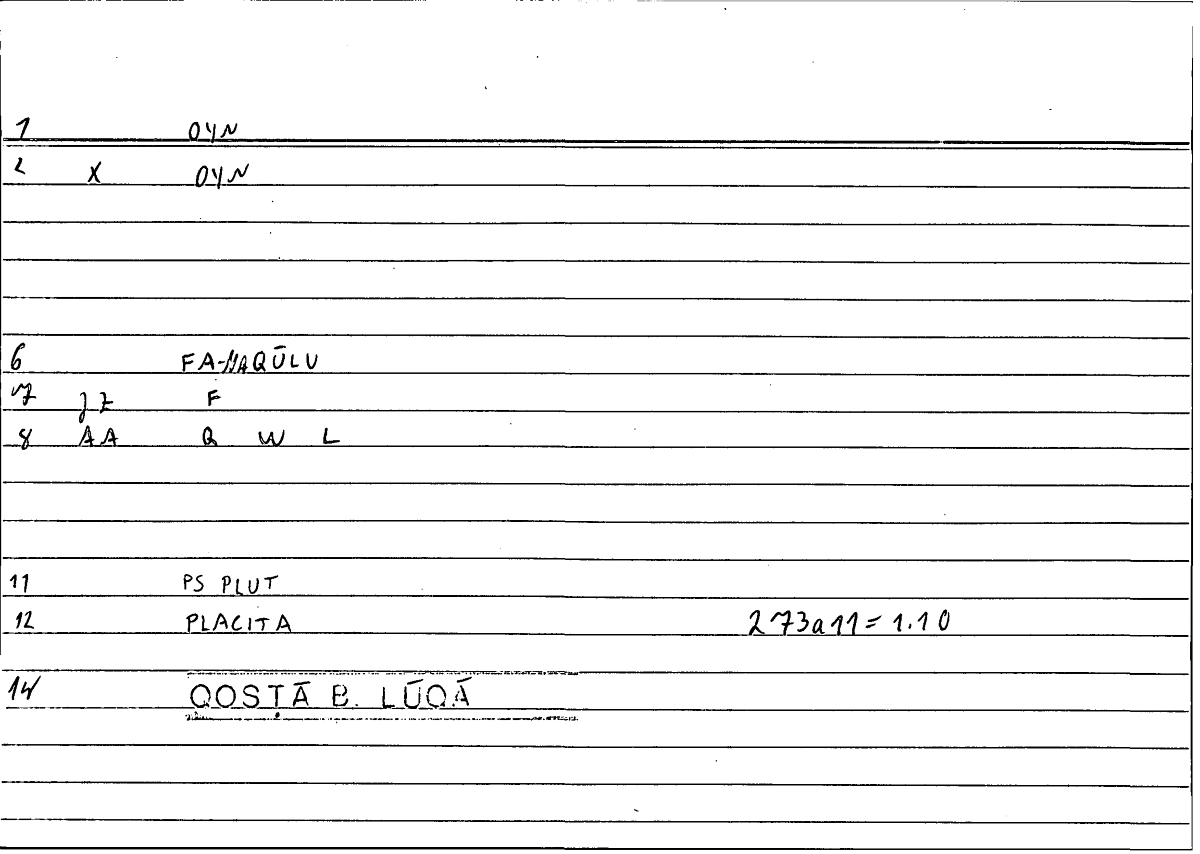 1 OYN
2 X OYN
6 FA-NAQŪLU
7 JZ F
8 AA Q W L
11 PS PLUT
12 PLACITA 273a11=1.10
14 QOSṬĀ B. LŪQĀ